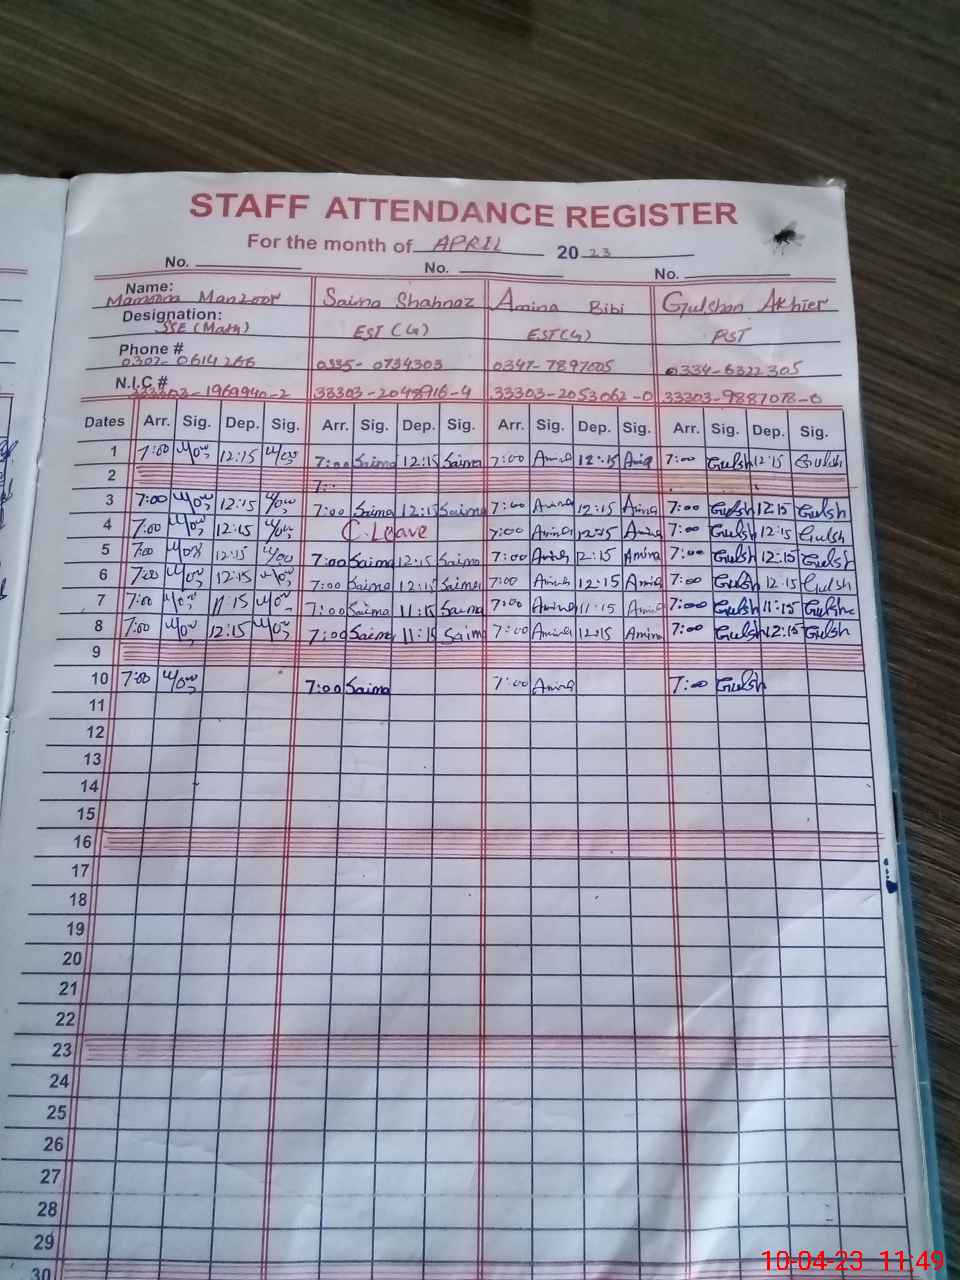 STAFF ATTENDANCE REGISTER
For the month of APRIL 2023
No. No. No.
Name: Manzoor Saima Shahnaz Amina Bibi Gulshan Akhter
Designation: SSE (Math) EST (G) EST(G) PST
Phone # 0307-0614266 0335-0734303 0347-7897005 0334-6322305
N.I.C.# 33303-1969940-2 33303-2048916-4 33303-2053062-0 33303-9887078-0
Dates Arr. Sig. Dep. Sig. Arr. Sig. Dep. Sig. Arr. Sig. Dep. Sig. Arr. Sig. Dep. Sig.
1 7:00 12:15 7:00 Saima 12:15 Saima 7:00 Amina 12:15 Amina 7:00 Gulsh 12:15 Gulsh
2 7:
3 7:00 12:15 7:00 Saima 12:15 Saima 7:00 Amina 12:15 Amina 7:00 Gulsh 12:15 Gulsh
4 7:00 12:15 C.Leave 7:00 Amina 12:15 Amina 7:00 Gulsh 12:15 Gulsh
5 7:00 12:15 7:00 Saima 12:15 Saima 7:00 Amina 12:15 Amina 7:00 Gulsh 12:15 Gulsh
6 7:00 12:15 7:00 Saima 12:15 Saima 7:00 Amina 12:15 Amina 7:00 Gulsh 12:15 Gulsh
7 7:00 11:15 7:00 Saima 11:15 Saima 7:00 Amina 11:15 Amina 7:00 Gulsh 11:15 Gulsh
8 7:00 12:15 7:00 Saima 11:15 Saima 7:00 Amina 12:15 Amina 7:00 Gulsh 12:15 Gulsh
9
10 7:00 7:00 Saima 7:00 Amina 7:00 Gulsh
11
12
13
14
15
16
17
18
19
20
21
22
23
24
25
26
27
28
29
30
10-04-23 11:49